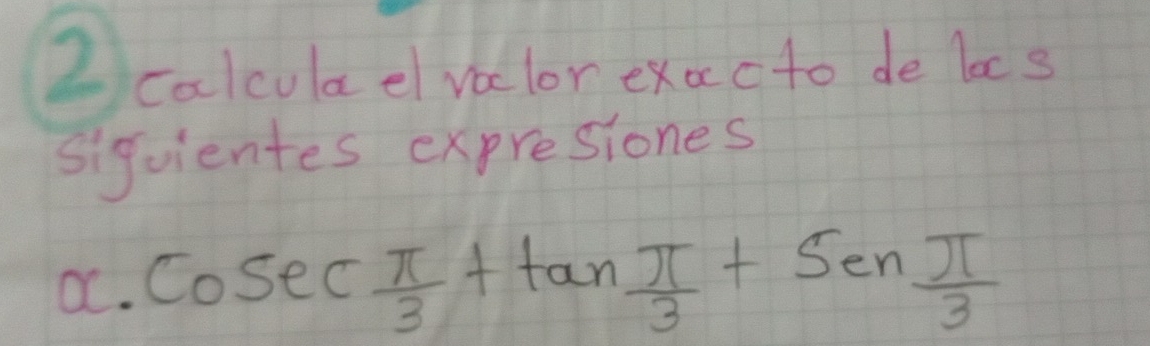 2 calcula el valor exacto de las
siguientes expresiones
a. Cosec π/3 + tan π/3 + Sen π/3